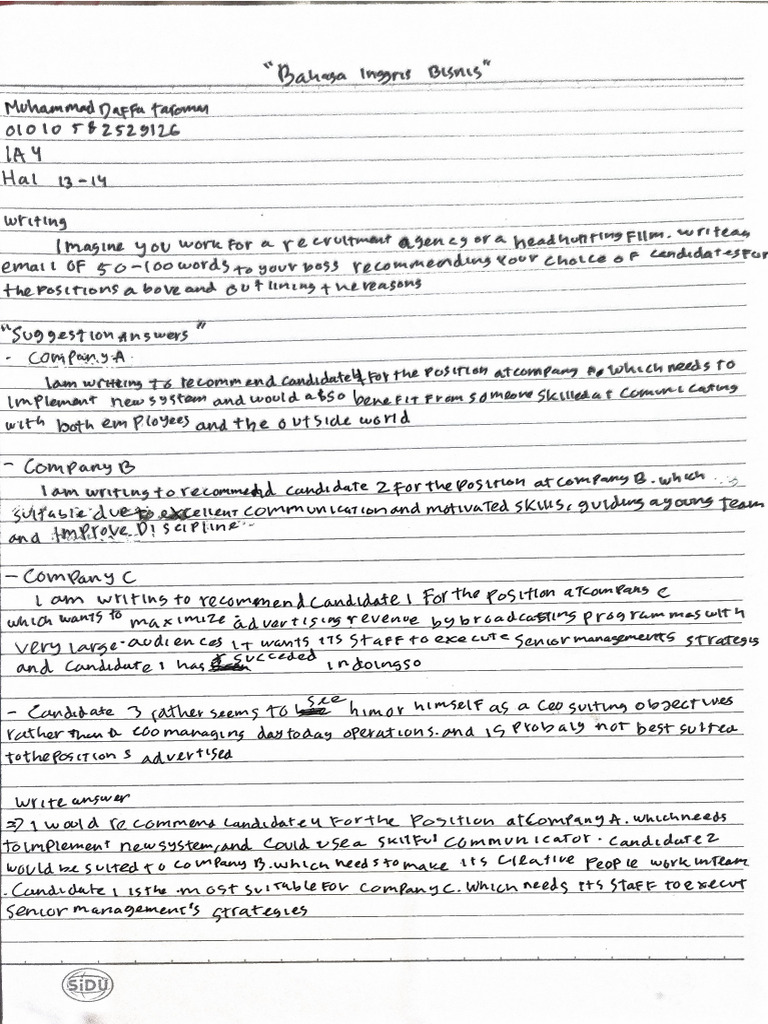 "Bahasa Inggris Bisnis"
Muhammad Daffa
010105882529126
1A4
Hal 13-14
writing
Imagine you work for a recruitment agency or a headhunting Film. write an
email OF 50-100 words to your boss recommending your choice of candidates For
the positions above and outlining the reasons
"Suggestion answers"
- Company A.
I am writing to recommend candidate 4 for the position at company A. which needs to
implement new system and would also benefit from someone skilled at comunicating
with both employees and the outside world
- Company B
I am writing to recommend candidate 2 for the position at company B. which
suitable due to excellent communication and motivated skills, guiding a young team
and improve Discipline
- Company C
I am writing to recommend candidate 1 for the position at company C
which wants to maximize advertising revenue by broadcasting programmes with
very large-audiences it wants its staff to execute senior managements strategis
and candidate 1 has succeded in doing so
- Candidate 3 rather seems to see him or himself as a ceo suiting objectives
rather than a coo managing day today operations. and is probaly not best suited
to the positions advertised
write answer
=> I would recommend candidate 4 for the position at Company A. which needs
to implement new system, and could use a skilful communicator. candidate 2
would be suited to company B. which needs to make its creative people work in team
. Candidate 1 is the most suitable for company C. which needs its staff to execut
senior management's strategies
SiDU